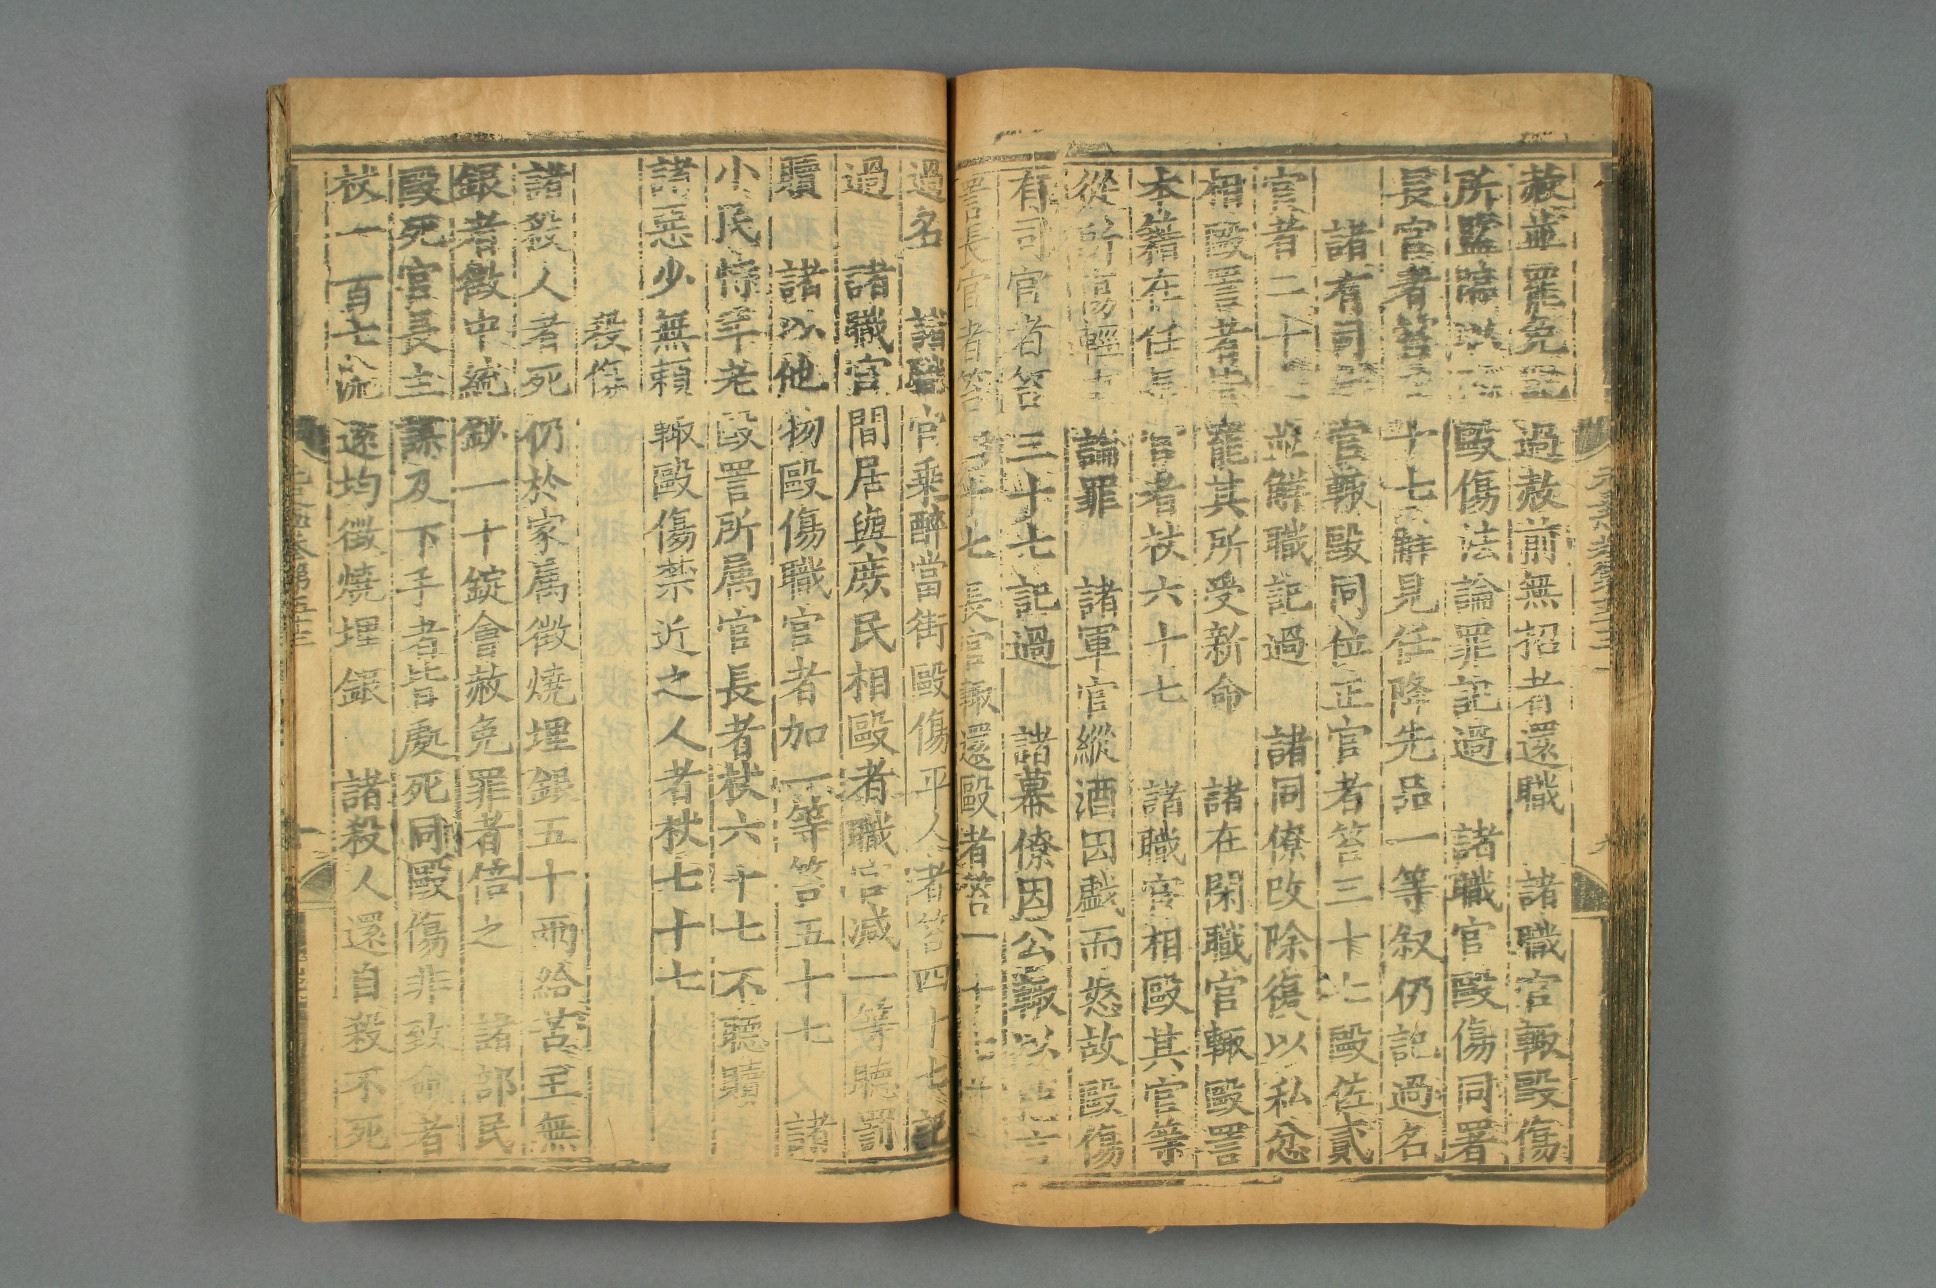 赦並罷免罪 過赦前無招者還職 諸職官輒毆傷
所監臨 毆傷法論罪記過 諸職官毆傷同署
長官者笞 十七解見任降先品一等叙仍記過名
諸有司 官輒毆同位正官者笞三十七毆佐貳
官者二十七 並解職記過 諸同僚改除復以私忿
相毆詈者 罷其所受新命 諸在閑職官輒毆詈
本籍在任長 官者杖六十七 諸職官相毆其官等
從所傷輕重 論罪 諸軍官縱酒因戲而怒故毆傷
有司官者笞 三十七記過 諸幕僚因公輒以惡言
詈長官者笞 十七 長官輒還毆者笞一十七
過名 諸職 官乘醉當街毆傷平人者笞四十七記
過 諸職官 間居與庶民相毆者職官减一等聽罰
贖 諸以他 物毆傷職官者加一等笞五十七 諸
小民恃年老 毆詈所属官長者杖六十七不聽贖
諸惡少無頼 輒毆傷禁近之人者杖七十七
殺傷
諸殺人者死 仍於家属徵燒埋銀五十兩給苦主無
銀者徵中統 鈔一十錠會赦免罪者倍之 諸部民
毆死官長主 謀及下手者皆處死同毆傷非致命者
杖一百七流 遠均徵燒埋銀 諸殺人還自殺不死